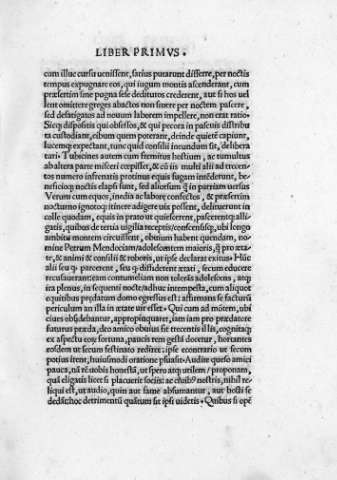 LIBER PRIMVS.
cum illuc cursu uenissent, satius putarunt differre, per noctis
tempus expugnare eos, qui iugum montis ascenderant, cum
præsertim sine pugna sese deditutos crederent, aut si hos uel
lent omittere greges abactos non sinere per noctem pascere,
sed defatigatos ad nouum laborem impellere, non erat ratio
Sicq; dispositis qui obsessos, & qui pecora in pascuis distribu
ta custodiant, cibum quem poterant, deinde quietē capiunt,
lucemq; expectant, nunc quid consilii ineundum sit, delibera
tari. Tubicines autem cum fremitus hostium, ac tumultus
ab altera parte misceri cœpisset, & cū iis multi alii ad trecen
tos numero infrenatis protinus equis fugam intēderunt, be-
neficioq; noctis elapsi sunt, sed aliorsum q̄ in patriam uersus
Verum cum equos, inedia ac labore confectos, & præsertim
nocturno ignotoq; itinere adigere uix possent, delituerunt in
colle quodam, equis in prato ut quiescerent, pascerentq; alli-
gatis, quibus de tertia uigilia receptis/conscensisq;, ubi longo
ambitu montem circuissent, obuium habent quendam, no-
mine Petrum Mendociam/adolescentem maioris, q̄ pro æta-
te, & animi & consilii & roboris, ut ipse declarat exitus. Hūc
alii seu q̄ parcerent, seu q̄ diffident ætati, secum educere
recusauerant: eam contumeliam non tolerās adolescens, atq;
ira plenus, in sequenti nocte/adhuc intempesta, cum aliquot
equitibus prædatum domo egressus est: affirmans se facturū
periculum an illa in ætate uir esset. Qui cum ad mōtem, ubi
ciues obsidebantur, appropinquaret, iam iam pro prædatore
futurus præda, deo amico obuius fit trecentis illis, cognitaq;
ex aspectu eorum fortuna, paucis rem gestā docetur, hortantes
eosdem ut secum festinato redirēt: ipse econtrario ut secom
potius irent, huiusmodi oratione psuasit. Audite quæso amici
pauca, nā rē uobis honestā, ut spero atq; utilem/proponam,
quā eligatis licet si placuerit sociis: ac ciuibꝰ nostris, nihil re-
liqui est, ut audio, quin aut fame absumantur, aut hosti se
dedāt: hoc detrimentū quātum sit ipsi uidetis. Quibus si opē